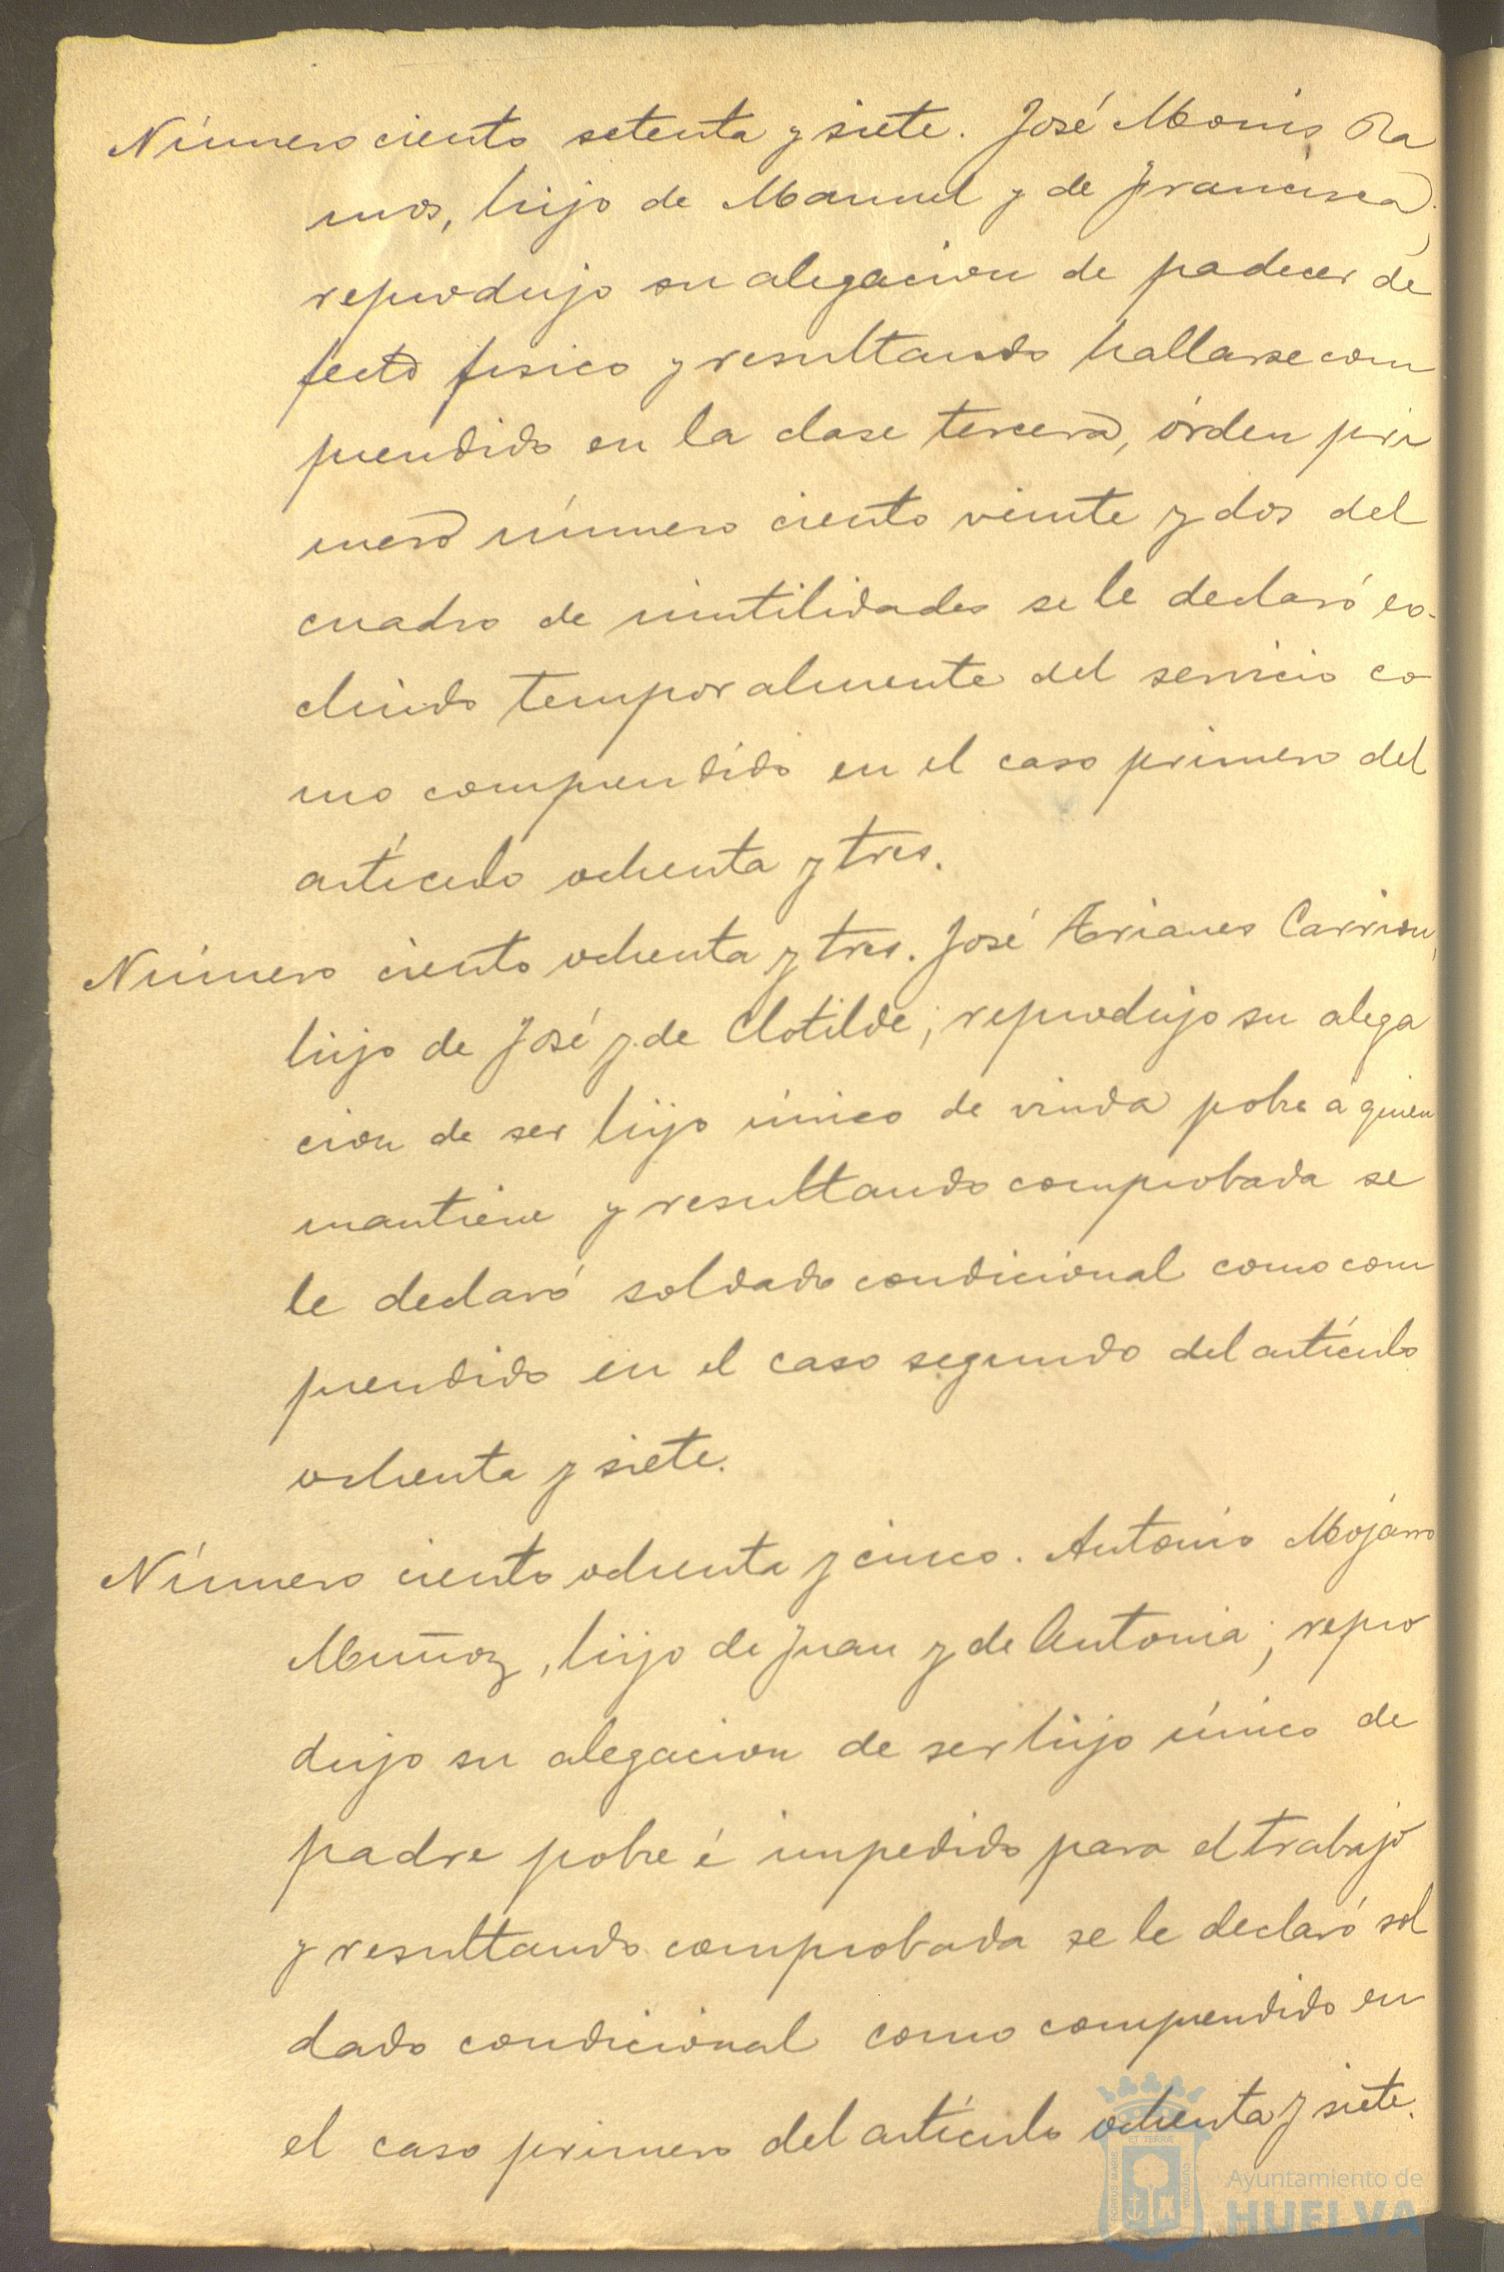 Número ciento setenta y siete. José Monis Ra
mos, hijo de Manuel y de Francisca,
reprodujo su alegacion de padecer de
fecto fisico y resultando hallarse com
prendido en la clase tercera, órden pri
mero número ciento veinte y dos del
cuadro de inutilidades se le declaró es-
cluido temporalmente del servicio co
mo comprendido en el caso primero del
artículo ochenta y tres.
Número ciento ochenta y tres. José Arianes Carrion,
hijo de José y de Clotilde; reprodujo su alega
cion de ser hijo único de viuda pobre a quien
mantiene y resultando comprobada se
le declaró soldado condicional como com
prendido en el caso segundo del artículo
ochenta y siete.
Número ciento ochenta y cinco. Antonio Mojarro
Muñoz, hijo de Juan y de Antonia; repro
dujo su alegacion de ser hijo único de
padre pobre é impedido para el trabajo
y resultando comprobada se le declaró sol
dado condicional como comprendido en
el caso primero del artículo ochenta y siete.
Ayuntamiento de
HUELVA